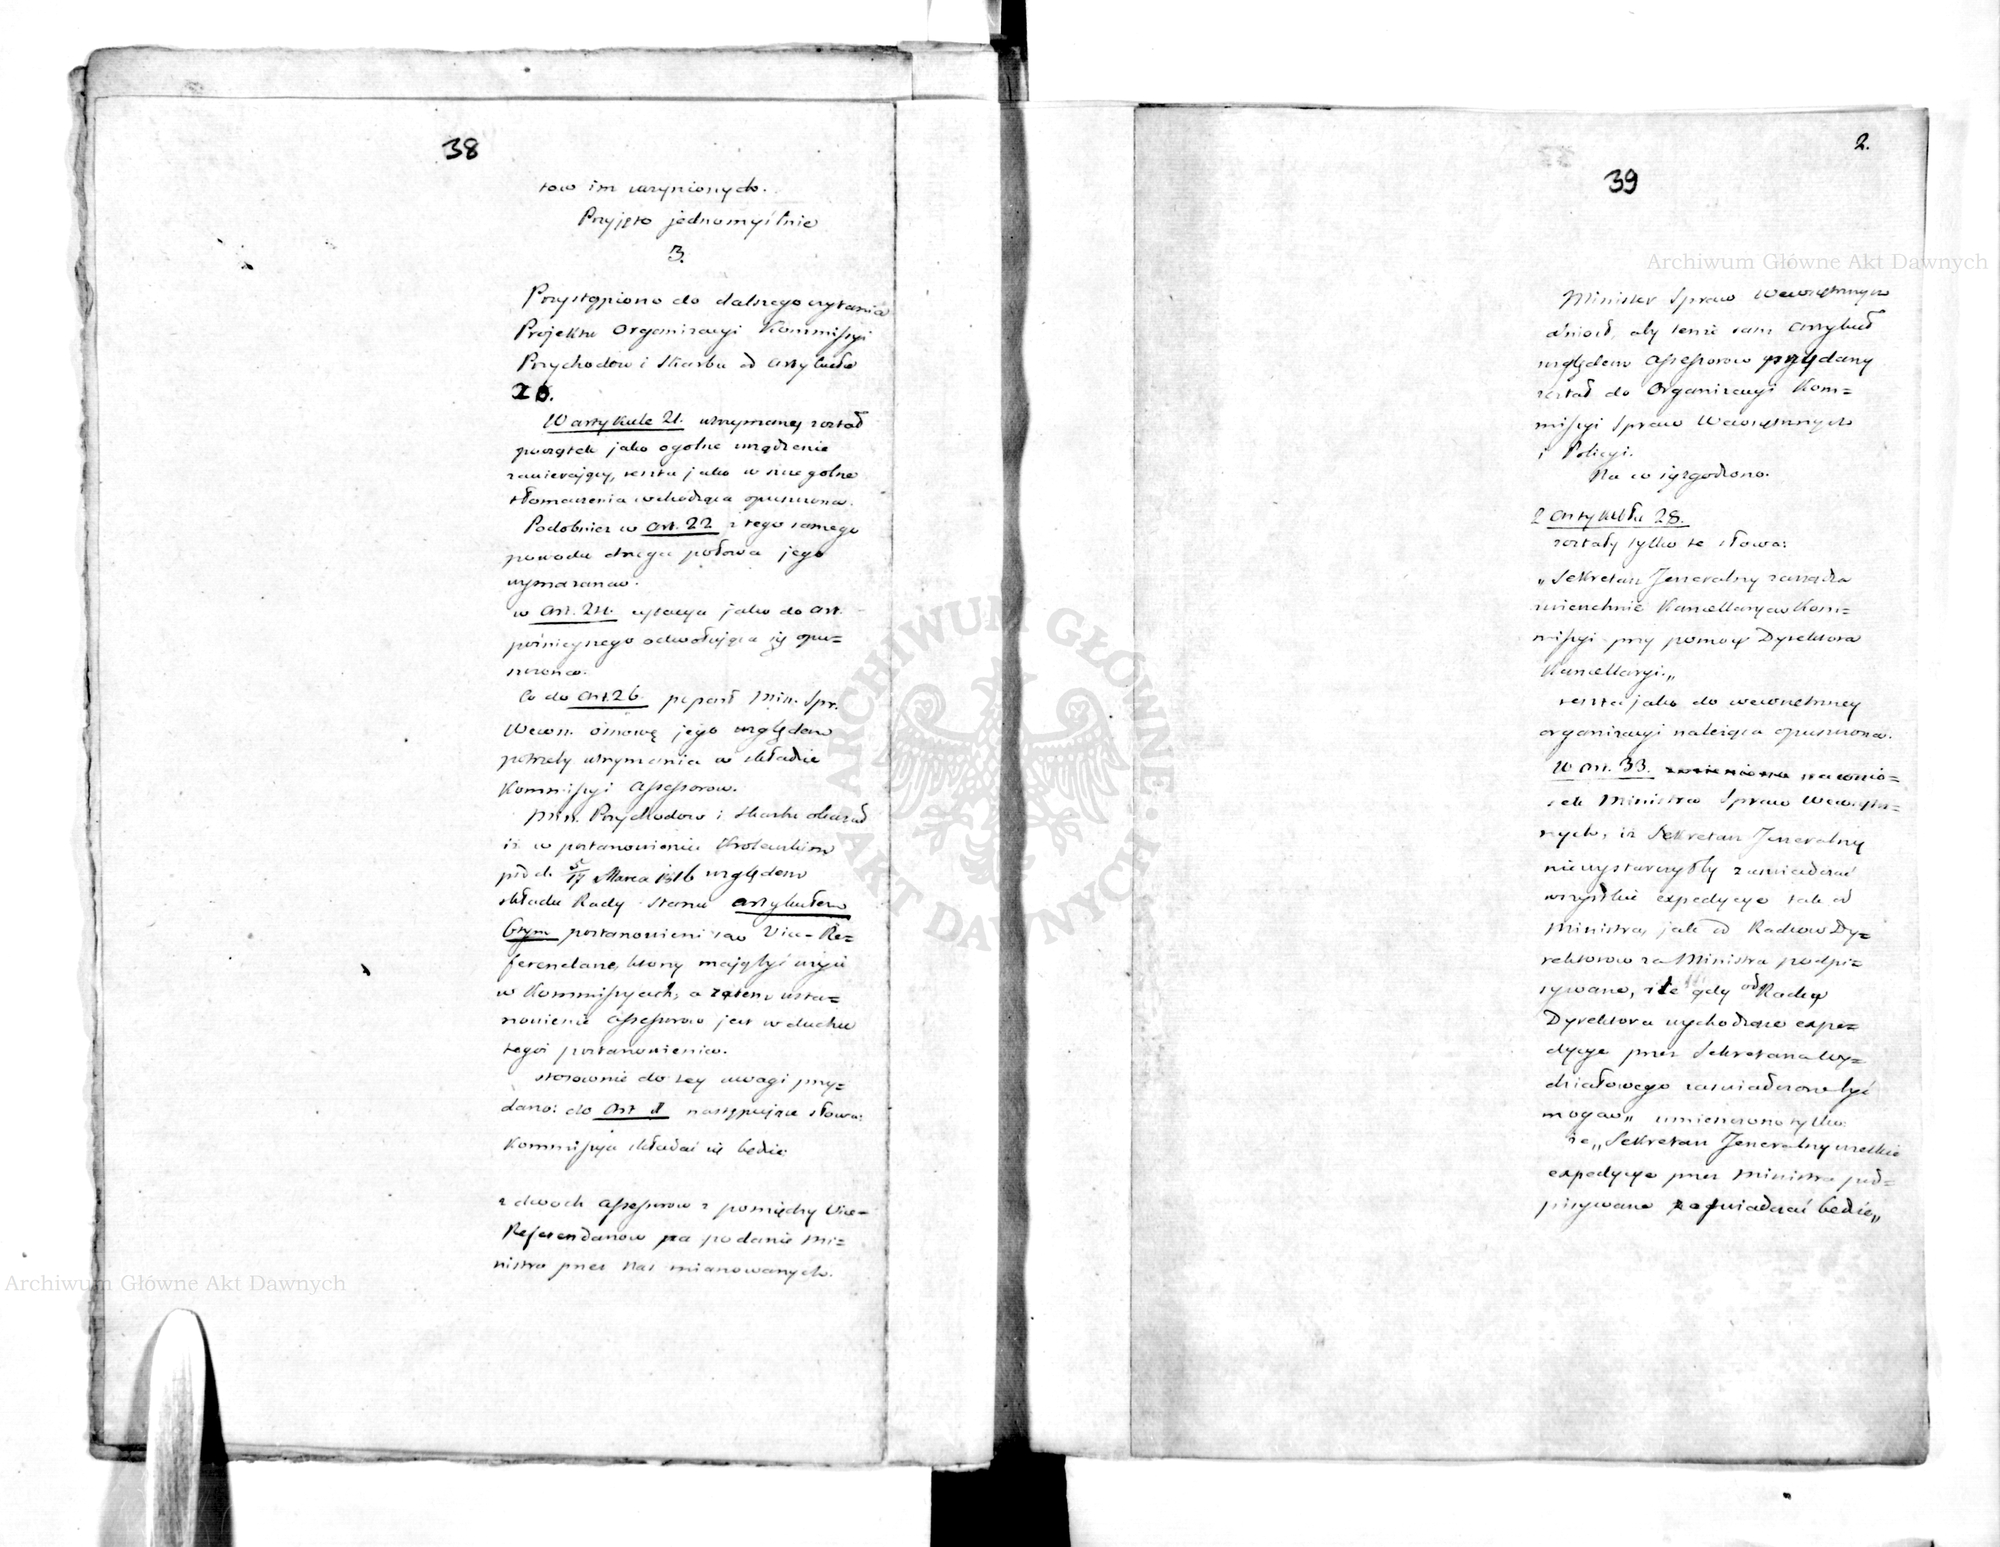 38
tow im uczynionych.
Przyjęto jednomyślnie
3.
Przystąpiono do dalszego czytania
Projektu Organizacyi Kommissyi
Przychodów i Skarbu od Artykułu
20.
W artykule 21. utrzymany został
początek jako ogólne urządzenie
zawierający, reszta jako w szczególne
tłomaczenia wchodząca opuszczona.
Podobnież w Art. 22 z tego samego
powodu druga połowa jego
wymazana.
w Art. 24. cytacya jako do art.
późnieyszego odwołująca się opu=
szczona.
Co do Art. 26. poparł Min. Spr.
Wewn. osnowę jego względem
potrzeby utrzymania w składzie
Kommissyi Assessorow.
Min. Przychodow i Skarbu okazał
iż w postanowieniu Krolewskim
pod d. 5/17 Marca 1816 względem
składu Rady Stanu artykułem
6tym postanowieni są Vice-Re=
ferendarze, ktorzy mają być użyci
w Kommissyach, a zatem usta=
nowienie Assessorow jest w duchu
tegoż postanowienia.
Stosownie do tey uwagi przy=
dano: do Art. następujące słowa:
Kommissya składać się będzie
z dwoch Assessorow z pomiędzy Vice=
Referendarzow na podanie Mi=
nistra przez Nas mianowanych.
2.
39
Archiwum Główne Akt Dawnych
Minister Spraw Wewnętrznych
wniosł, aby tenże sam Artykuł
względem Assessorow przydany
został do Organizacyi Kom=
missyi Spraw Wewnętrznych
i Policyi.
Na co się zgodzono.
Z Artykułu 28.
zostały tylko te słowa:
„Sekretarz Jeneralny zarządza
zwierzchnie Kancellaryą Kom=
missyi przy pomocy Dyrektora
Kancellaryi„
reszta jako do wewnętrzney
organizacyi należąca opuszczona.
W Art. 33. na wnio=
sek Ministra Spraw Wewnętrz=
nych, iż Sekretarz Jeneralny
niewystarczyłby zaświadczać
wszystkie expedycye tak od
Ministra, jak od Radcow Dy=
rektorow za Ministra podpi=
sywane, i że gdy od Radcy
Dyrektora wychodzące expe=
dycye przez Sekretarza Wy=
działowego zaświadczone być
mogą„ umieszczono tylko:
że „Sekretarz Jeneralny wszelkie
expedycye przez Ministra pod=
pisywane zaświadczać będzie„
ARCHIWUM GŁÓWNE AKT DAWNYCH
Archiwum Główne Akt Dawnych